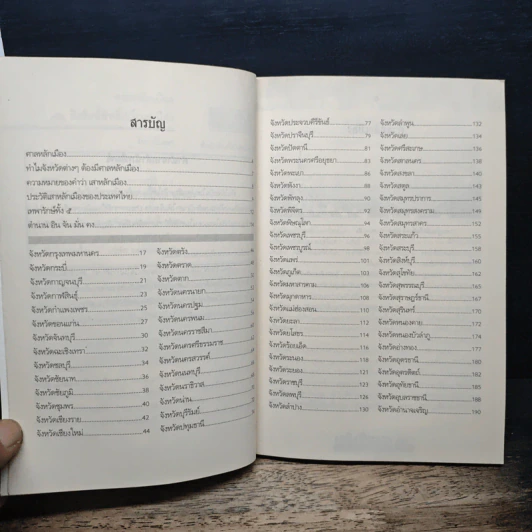 สารบัญ
ศาลหลักเมือง
ทำไมจังหวัดต่างๆ ต้องมีศาลหลักเมือง
ความหมายของคำว่า เสาหลักเมือง
ประวัติเสาหลักเมืองของประเทศไทย
เทพารักษ์ทั้ง ๕
ตำนาน อิน จัน มั่น คง
จังหวัดกรุงเทพมหานคร 17
จังหวัดกระบี่ 19
จังหวัดกาญจนบุรี 21
จังหวัดกาฬสินธุ์ 23
จังหวัดกำแพงเพชร 25
จังหวัดขอนแก่น 27
จังหวัดจันทบุรี 30
จังหวัดฉะเชิงเทรา 32
จังหวัดชลบุรี 34
จังหวัดชัยนาท 36
จังหวัดชัยภูมิ 38
จังหวัดชุมพร 40
จังหวัดเชียงราย 42
จังหวัดเชียงใหม่ 44
จังหวัดตรัง
จังหวัดตราด
จังหวัดตาก
จังหวัดนครนายก
จังหวัดนครปฐม
จังหวัดนครพนม
จังหวัดนครราชสีมา
จังหวัดนครศรีธรรมราช
จังหวัดนครสวรรค์
จังหวัดนนทบุรี
จังหวัดนราธิวาส
จังหวัดน่าน
จังหวัดบุรีรัมย์
จังหวัดปทุมธานี
จังหวัดประจวบคีรีขันธ์ 77
จังหวัดปราจีนบุรี 79
จังหวัดปัตตานี 82
จังหวัดพระนครศรีอยุธยา 84
จังหวัดพะเยา 86
จังหวัดพังงา 88
จังหวัดพัทลุง 90
จังหวัดพิจิตร 92
จังหวัดพิษณุโลก 94
จังหวัดเพชรบุรี 96
จังหวัดเพชรบูรณ์ 98
จังหวัดแพร่
จังหวัดภูเก็ต
จังหวัดมหาสารคาม
จังหวัดมุกดาหาร
จังหวัดแม่ฮ่องสอน
จังหวัดยะลา
จังหวัดยโสธร
จังหวัดร้อยเอ็ด
จังหวัดระนอง
จังหวัดระยอง
จังหวัดราชบุรี
จังหวัดลพบุรี
จังหวัดลำปาง 130
จังหวัดลำพูน 132
จังหวัดเลย 134
จังหวัดศรีสะเกษ 136
จังหวัดสกลนคร
จังหวัดสงขลา
จังหวัดสตูล
จังหวัดสมุทรปราการ
จังหวัดสมุทรสงคราม
จังหวัดสมุทรสาคร
จังหวัดสระแก้ว
จังหวัดสระบุรี
จังหวัดสิงห์บุรี
จังหวัดสุโขทัย
จังหวัดสุพรรณบุรี
จังหวัดสุราษฎร์ธานี
จังหวัดสุรินทร์
จังหวัดหนองคาย
จังหวัดหนองบัวลำภู
จังหวัดอ่างทอง
จังหวัดอุดรธานี
จังหวัดอุตรดิตถ์
จังหวัดอุทัยธานี 185
จังหวัดอุบลราชธานี 188
จังหวัดอำนาจเจริญ 190